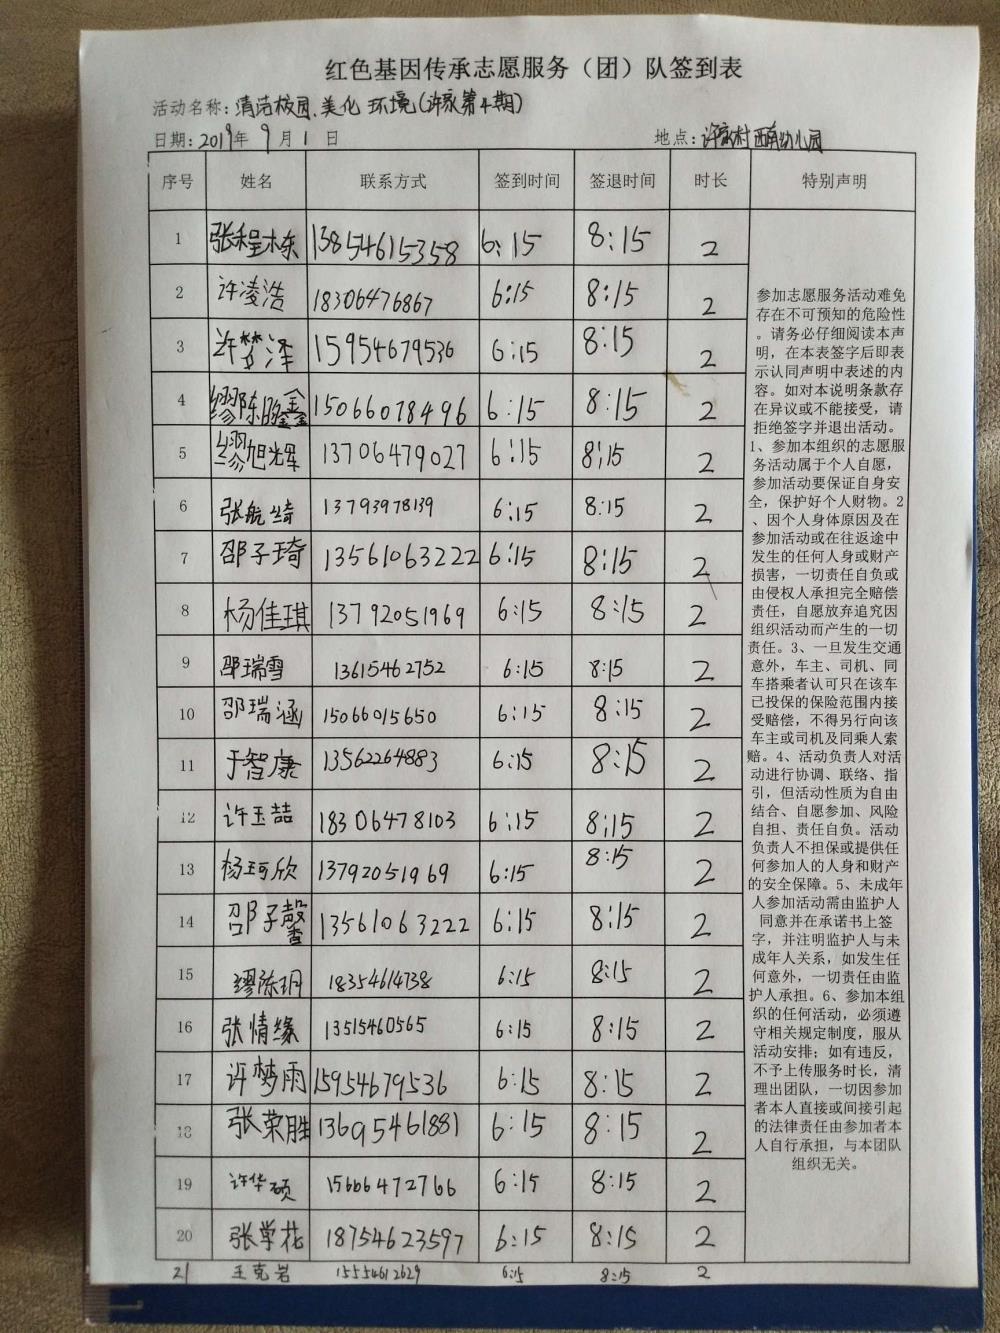 红色基因传承志愿服务（团）队签到表
活动名称：清洁校园、美化环境（许家第4期）
日期：2019年9月1日 地点：许家村西南幼儿园
序号 姓名 联系方式 签到时间 签退时间 时长 特别声明
1 张程栋 13854615358 6:15 8:15 2
2 许凌浩 18306476867 6:15 8:15 2
3 许梦泽 15954679536 6:15 8:15 2
4 缪陈鑫 15066078496 6:15 8:15 2
5 缪旭辉 13706479027 6:15 8:15 2
6 张航绮 13793978139 6:15 8:15 2
7 邵子琦 13561063222 6:15 8:15 2
8 杨佳琪 13792051969 6:15 8:15 2
9 邵瑞雪 13615462752 6:15 8:15 2
10 邵瑞涵 15066015650 6:15 8:15 2
11 于智康 13562264883 6:15 8:15 2
12 许玉喆 18306478103 6:15 8:15 2
13 杨珂欣 13792051969 6:15 8:15 2
14 邵子馨 13561063222 6:15 8:15 2
15 缪陈玥 18354614738 6:15 8:15 2
16 张情缘 13515460565 6:15 8:15 2
17 许梦雨 15954679536 6:15 8:15 2
18 张荣胜 13695461881 6:15 8:15 2
19 许华硕 15666472766 6:15 8:15 2
20 张学花 18754623597 6:15 8:15 2
21 王克岩 15554612629 6:15 8:15 2
参加志愿服务活动难免
存在不可预知的危险性
。请务必仔细阅读本声
明，在本表签字后即表
示认同声明中表述的内
容。如对本说明条款存
在异议或不能接受，请
拒绝签字并退出活动。
1、参加本组织的志愿服
务活动属于个人自愿，
参加活动要保证自身安
全，保护好个人财物。2
、因个人身体原因及在
参加活动或在往返途中
发生的任何人身或财产
损害，一切责任自负或
由侵权人承担完全赔偿
责任，自愿放弃追究因
组织活动而产生的一切
责任。3、一旦发生交通
意外，车主、司机、同
车搭乘者认可只在该车
已投保的保险范围内接
受赔偿，不得另行向该
车主或司机及同乘人索
赔。4、活动负责人对活
动进行协调、联络、指
引，但活动性质为自由
结合、自愿参加、风险
自担、责任自负。活动
负责人不担保或提供任
何参加人的人身和财产
的安全保障。5、未成年
人参加活动需由监护人
同意并在承诺书上签
字，并注明监护人与未
成年人关系，如发生任
何意外，一切责任由监
护人承担。6、参加本组
织的任何活动，必须遵
守相关规定制度，服从
活动安排；如有违反，
不予上传服务时长，清
理出团队，一切因参加
者本人直接或间接引起
的法律责任由参加者本
人自行承担，与本团队
组织无关。